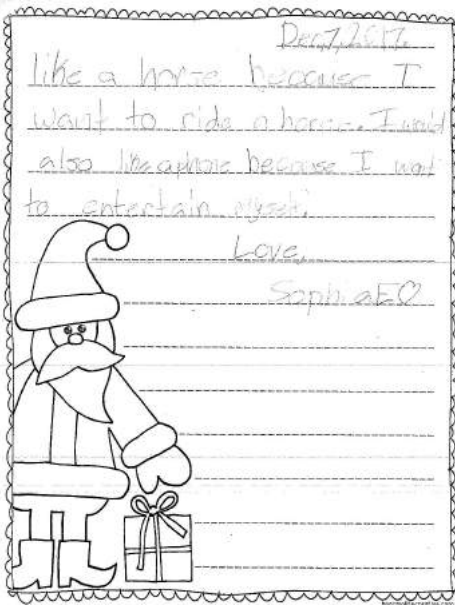 Dec,7,2017.
like a horse because I
want to ride a horse. I would
also like a phone because I want
to entertain myself.
Love,
Sophia E♡